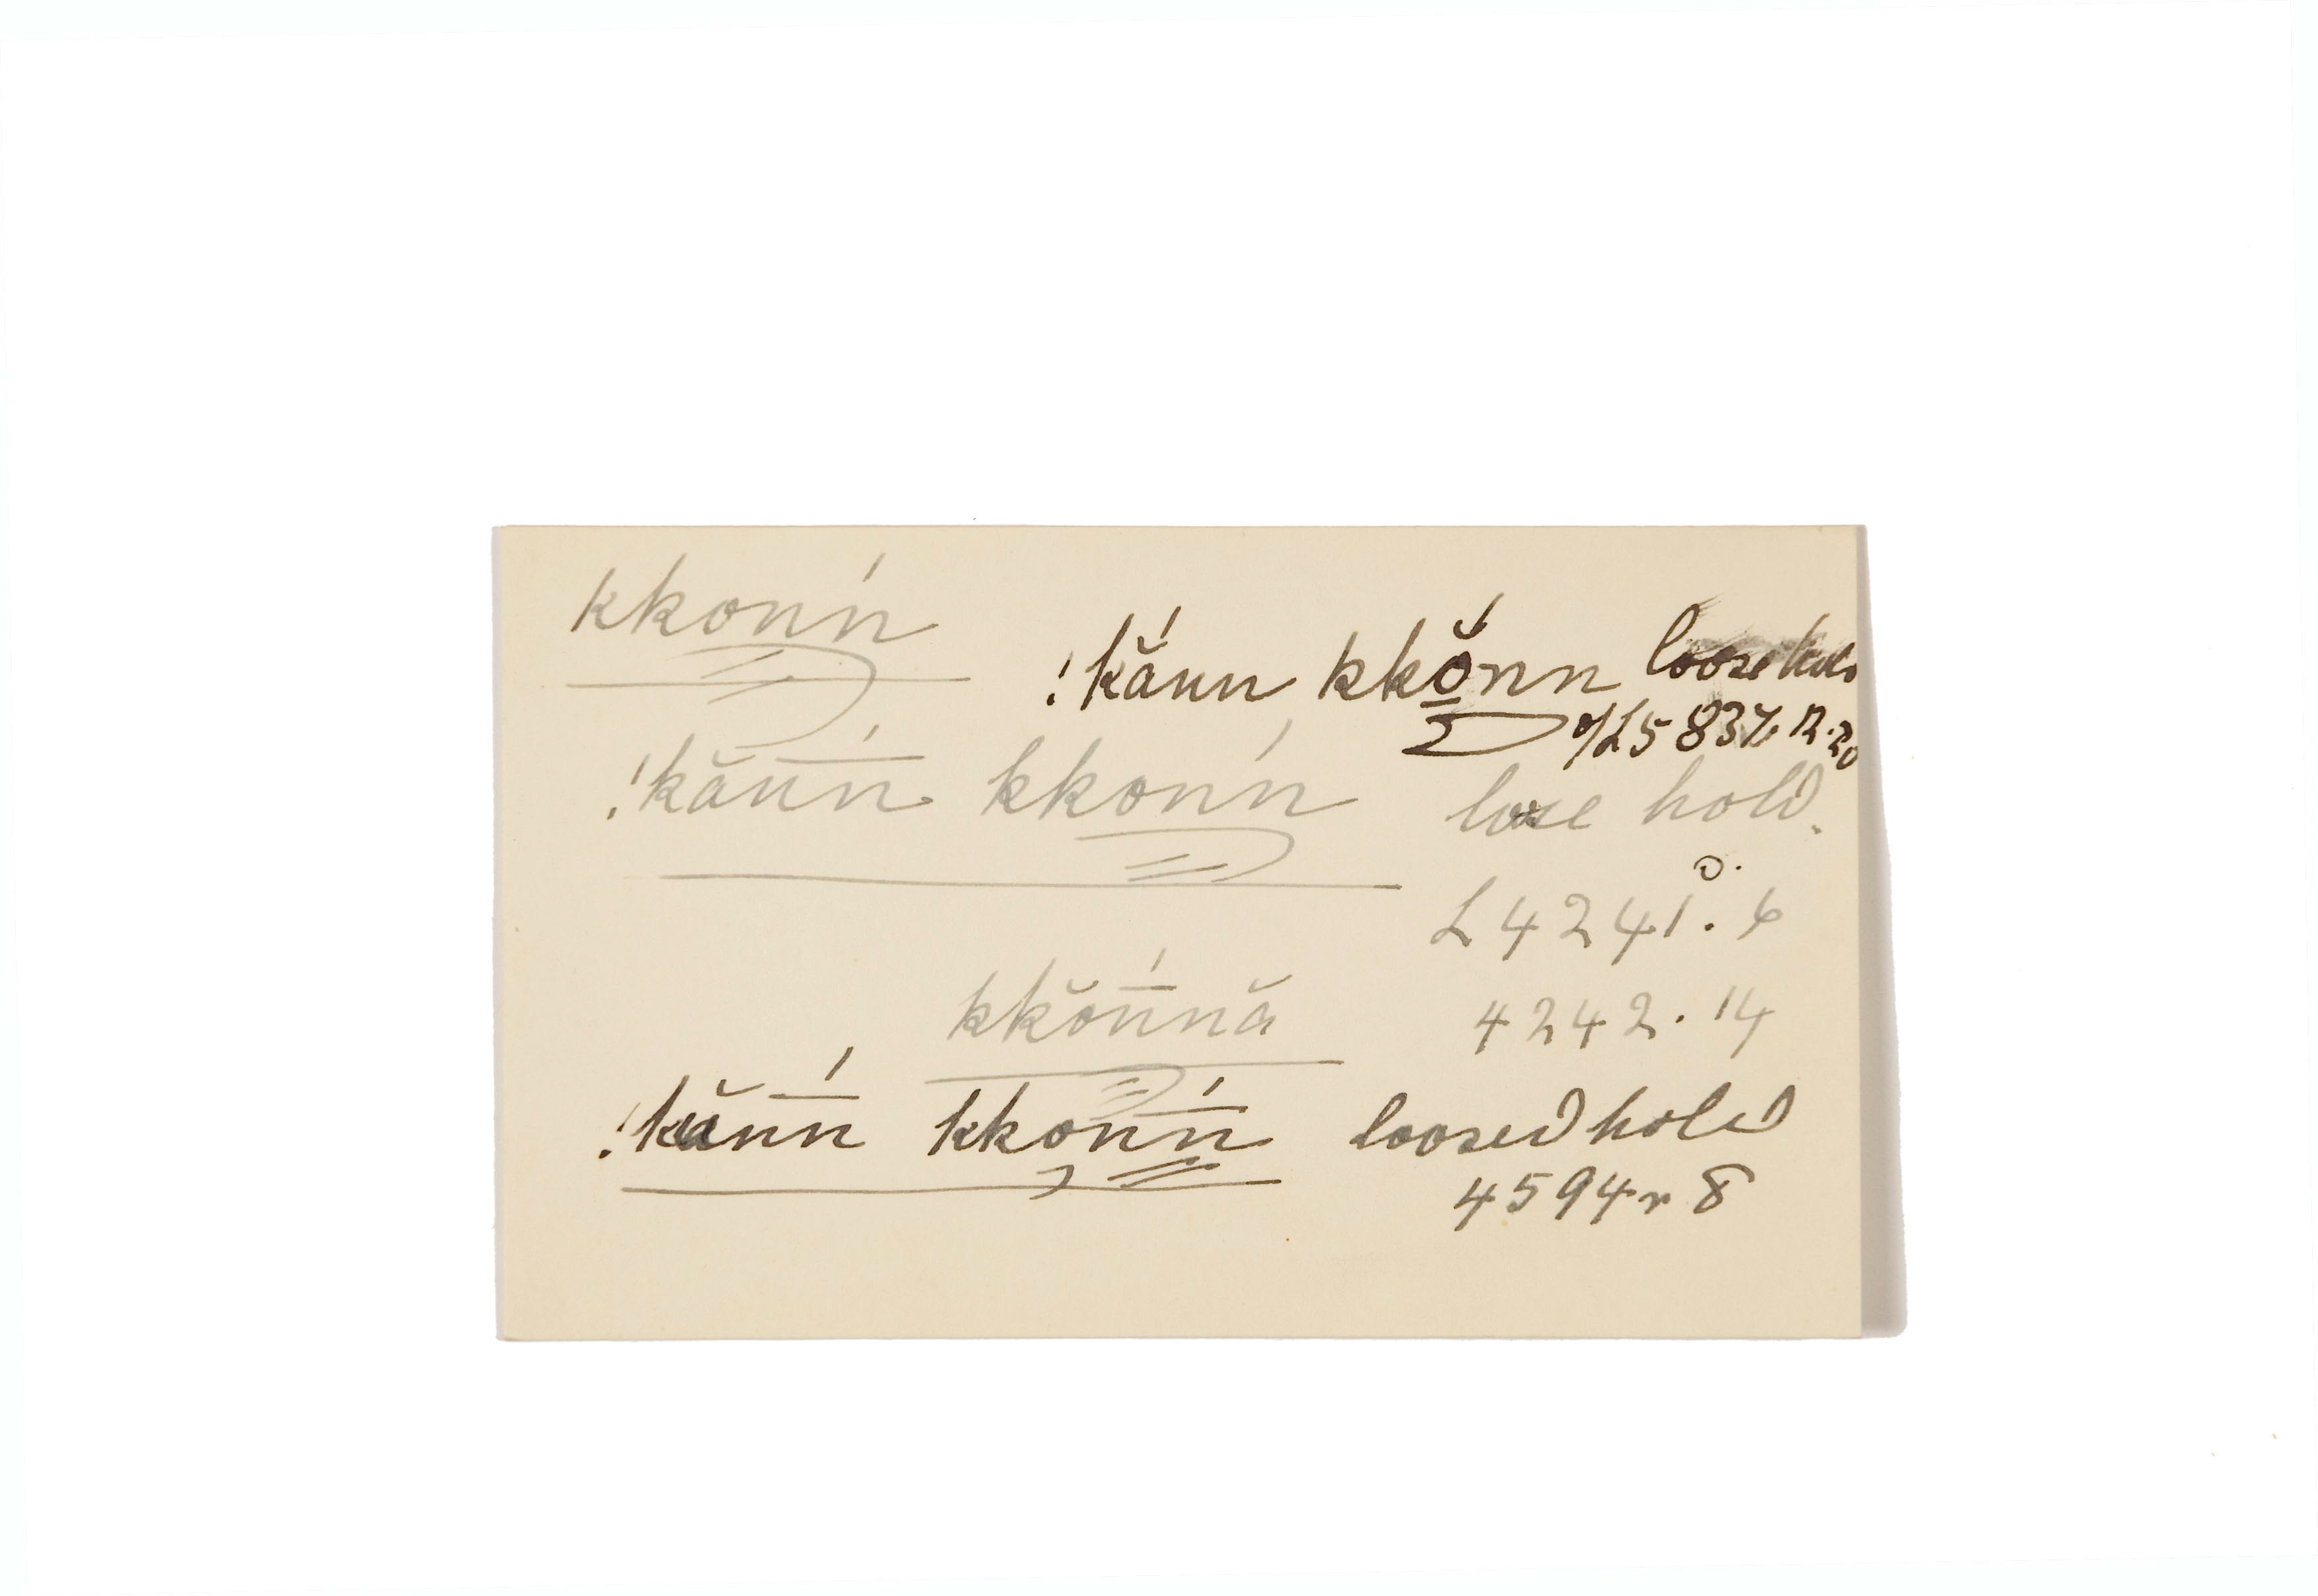 kkonń
!kắnn kkŏ́nn loose hold
L5 837 R. 20
!kănń kkonń lose hold.
o.
L 4241. 6
kkŏńnă
4242. 14
!kănń kkonń loosed hold
4594 r 8